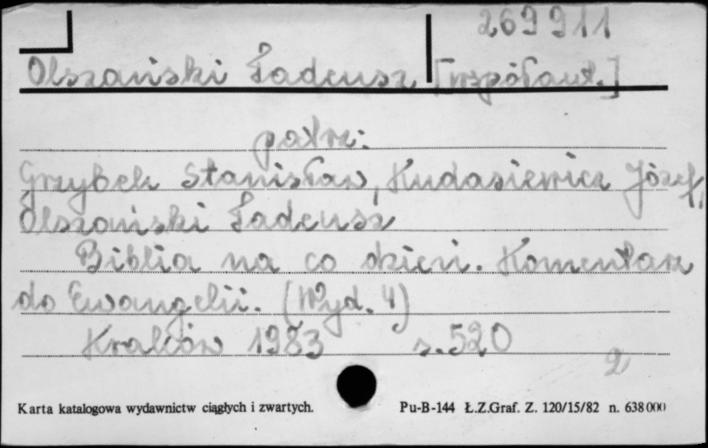 269911
Olszański Tadeusz [współaut.]
patrz:
Grzybek Stanisław, Kudasiewicz Józef,
Olszański Tadeusz
Biblia na co dzień. Komentarz
do Ewangelii. (Wyd. 4)
Kraków 1983 s. 520
2
Karta katalogowa wydawnictw ciągłych i zwartych. Pu-B-144 Ł.Z.Graf. Z. 120/15/82 n. 638000